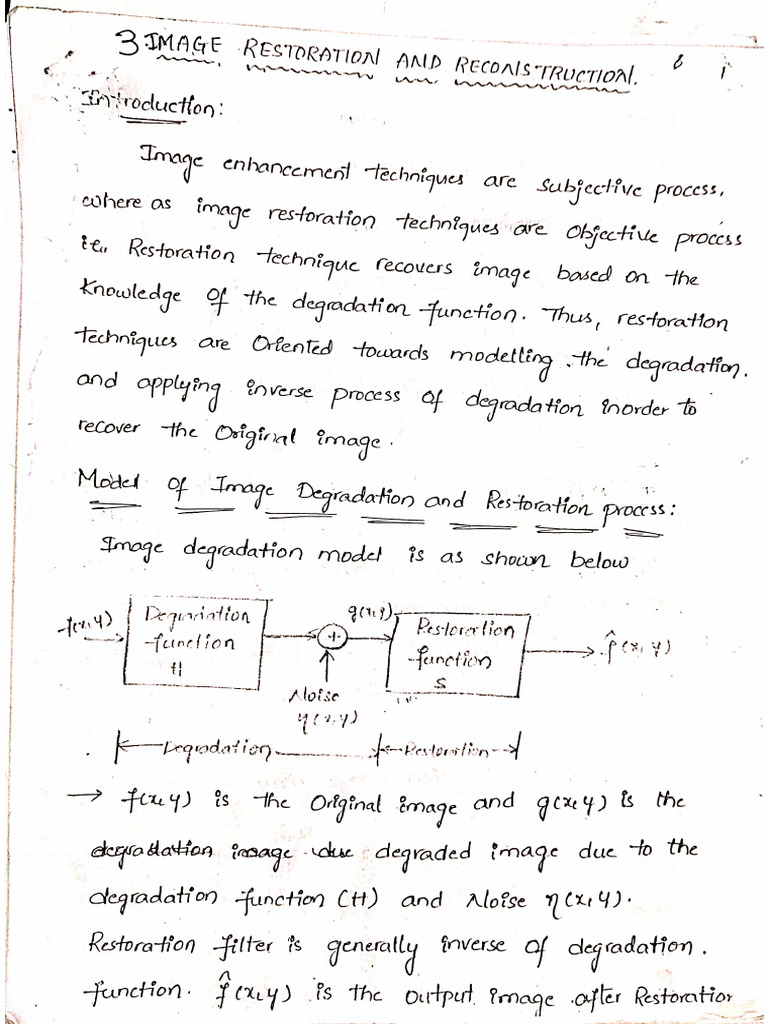 3. IMAGE RESTORATION AND RECONSTRUCTION.
Introduction:
Image enhancement techniques are subjective process,
where as image restoration techniques are Objective process
i.e., Restoration technique recovers image based on the
knowledge of the degradation function. Thus, restoration
techniques are Oriented towards modelling the degradation.
and applying inverse process of degradation inorder to
recover the Original image.
Model of Image Degradation and Restoration process:
Image degradation model is as shown below
f(x,y)
Degradation
function
H
+
Noise
η(x,y)
g(x,y)
Restoration
function
S
f̂(x,y)
Degradation
Restoration
→ f(x,y) is the Original image and g(x,y) is the
degradation image due degraded image due to the
degradation function (H) and Noise η(x,y).
Restoration filter is generally inverse of degradation.
function. f̂(x,y) is the output image after Restoration